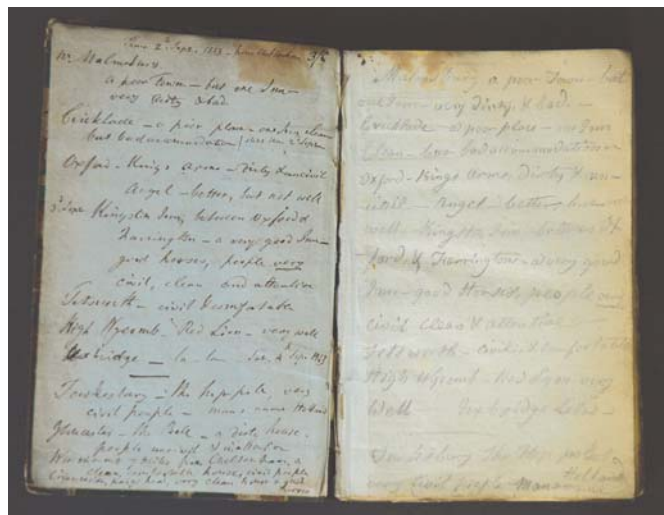 Malmsbury
a poor Town - but one Inn -
very dirty & bad
Cricklade - a poor place - one Inn, clean
but bad accomodation
Oxford - Kings arms - dirty & uncivil
Angel - better, but not well
Kingston Inn, between Oxford &
Farrington - a very good Inn -
good horses, people very
civil, clean and attentive
Tetsworth - civil & comfortable
High Wycomb - Red Lion - very well
Uxbridge - la la -
Tewkesbury - the hop pole, very
civil people - mans name Holland
Gloucester - the Bell - a dirty house -
people uncivil & inattentive
clean, comfortable house, civil people
Cirencester, very clean house & good
Malmsbury a poor Town - but
one Inn - very Dirty, & bad -
Cricklade - a poor place - one Inn
Clean - but bad accommodation
Oxford - Kings Arms, Dirty & un-
civil - Angel - better,
well - Kingston Inn - between Ox-
ford & Farrington - a very good
Inn - good Horses, people very
civil clean & attentive
Tetsworth - civil & comfortable
High Wycomb - Red Lyon very
Well - Uxbridge
Tewkesbury The Hop pole
very Civil People Mans name Holland